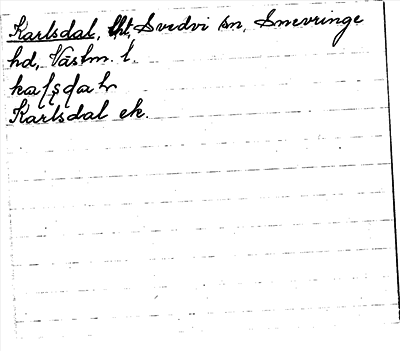 Karlsdal, lht, Svedvi sn, Snevringe
hd, Västm. l.
Karlsdal ek.